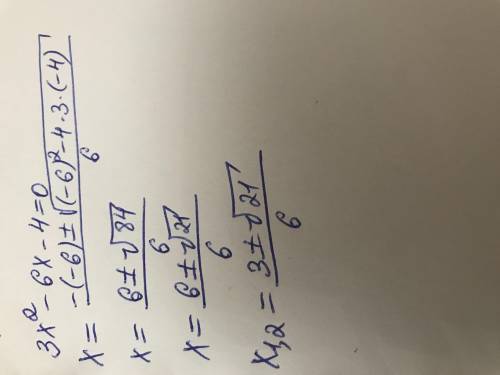 3x² - 6x - 4 = 0
x = -(-6) ± √(-6)² - 4 · 3 · (-4) / 6
x = 6 ± √84 / 6
x = 6 ± √21 / 6
x1,2 = 3 ± √21 / 6